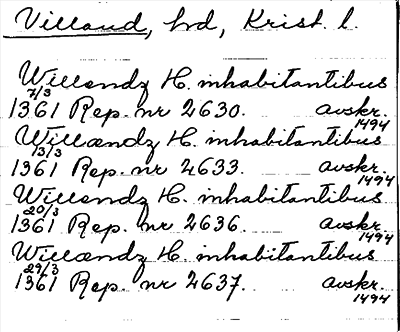 Villand, hd, Krist. l.
Willandz H. inhabitantibus
7/3
1361 Rep. nr 2630. avskr.
1494
Willændz H. inhabitantibus
13/3
1361 Rep. nr 2633. avskr.
1494
Willandz H. inhabitantibus
20/3
1361 Rep. nr 2636. avskr.
1494
Willændz H. inhabitantibus
29/3
1361 Rep. nr 2637. avskr.
1494